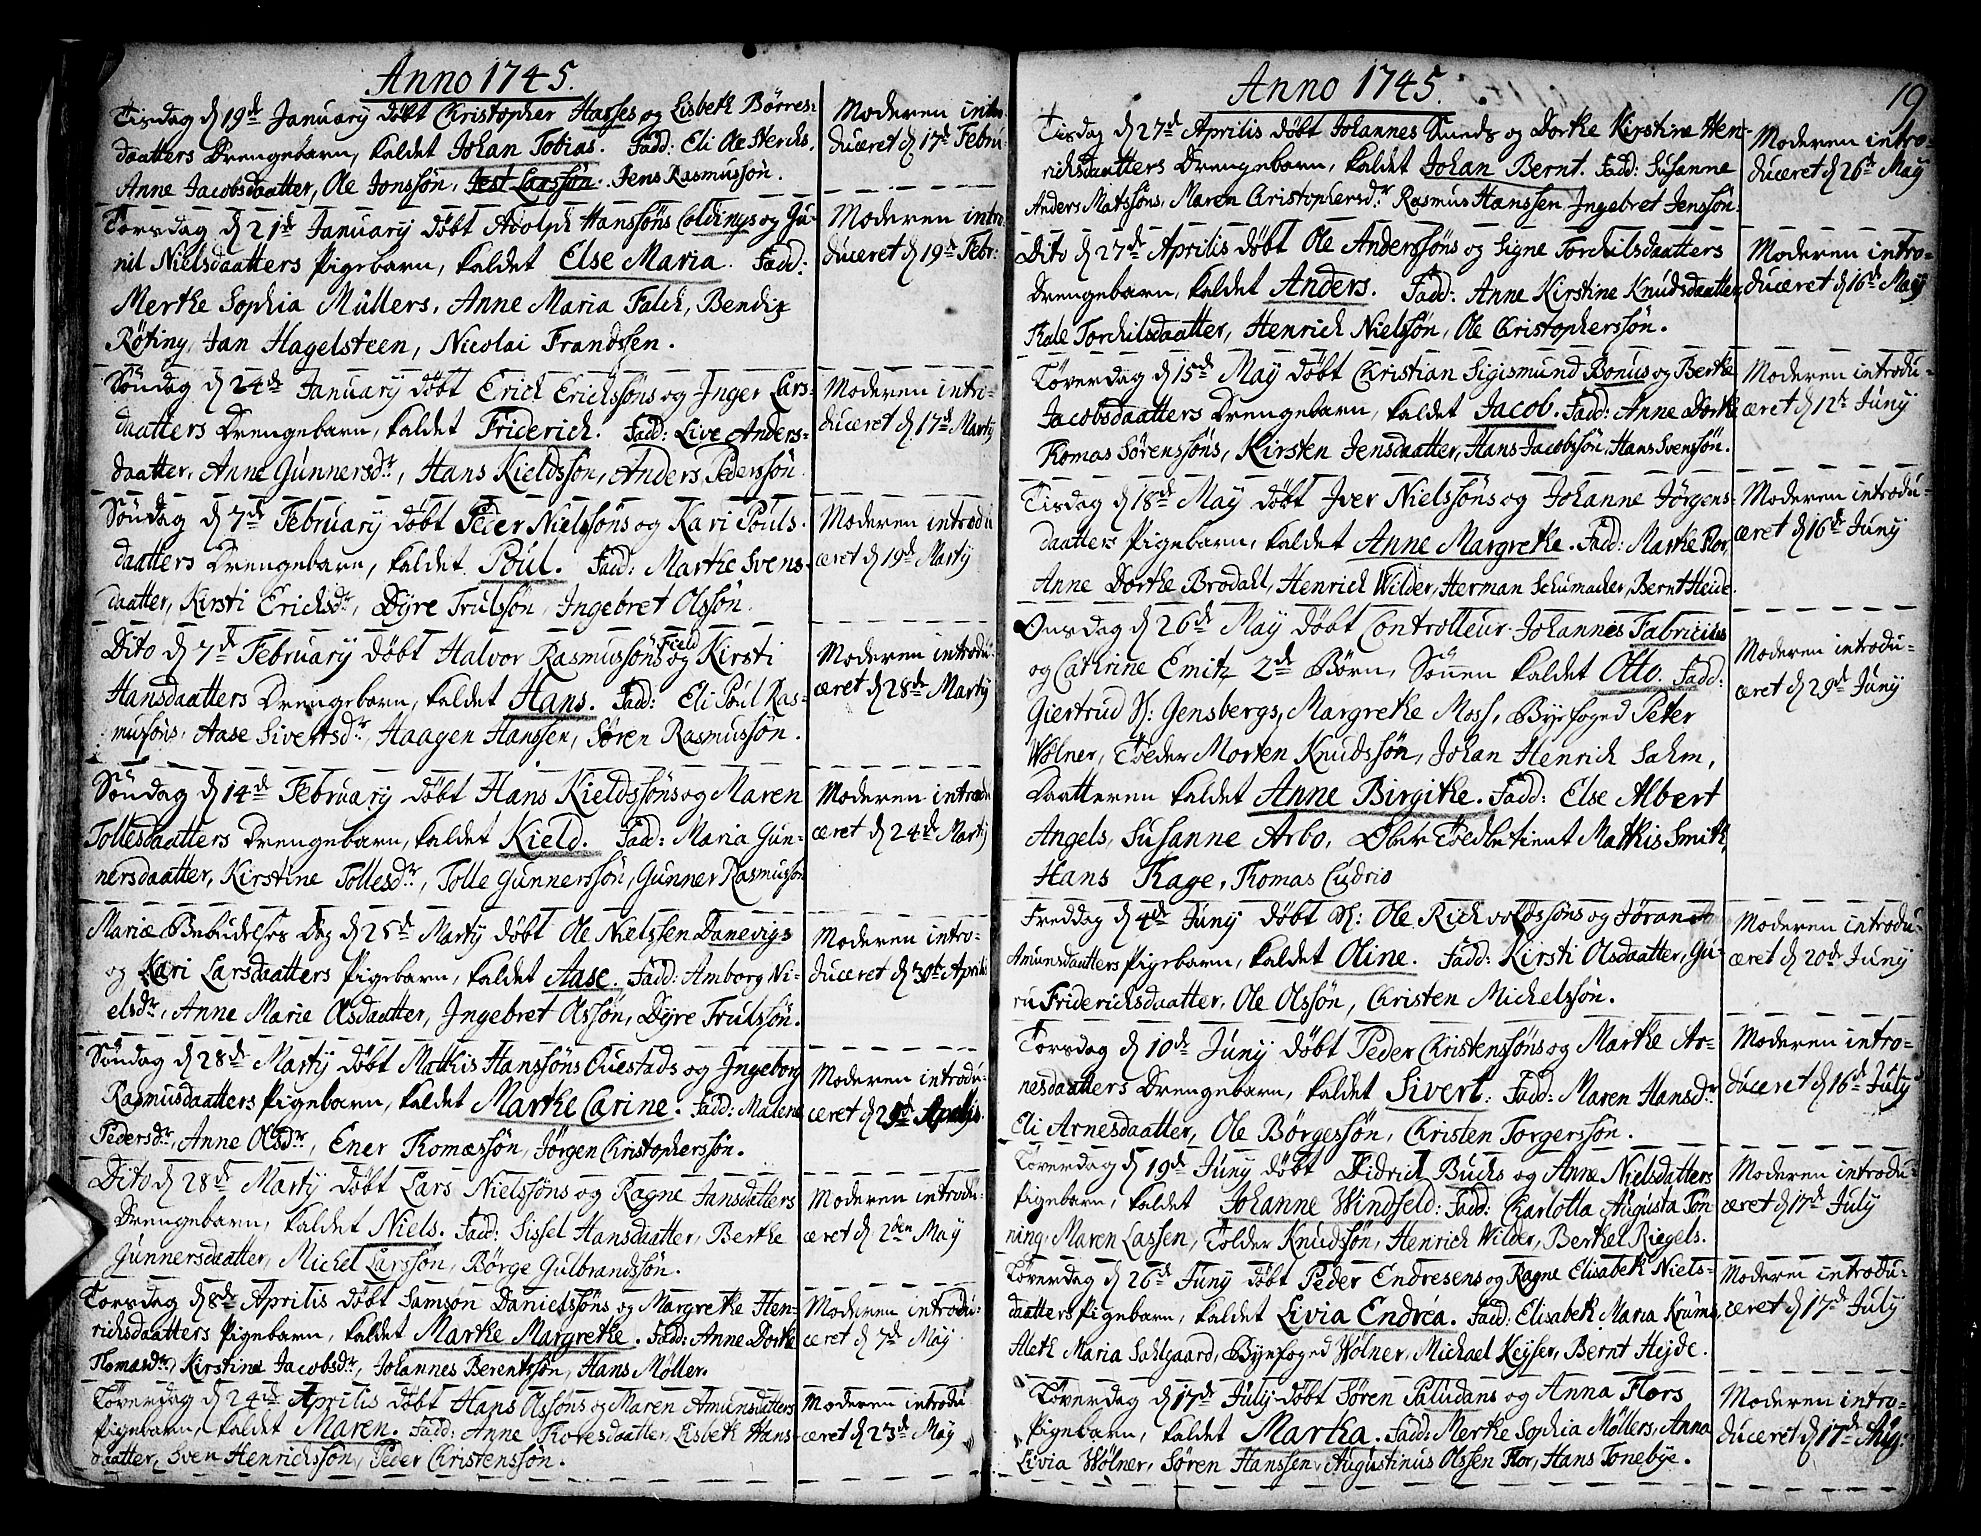 Anno 1745.
Tisdag d 19de January døbt Christopher Hasses og Lisbeth Børres-
daatters Drengebarn, kaldet Johan Tobias. Fadd: Eli Ole
Anne Jacobsdaatter, Ole Jonssøn, Jens Rasmussøn.
Moderen intro-
duceret d 17de Febru:
Torsdag d 21de January døbt Adolph Hanssøns Coldings og Gu-
nil Nielsdaatters Pigebarn, kaldet Else Maria. Fadd:
Merthe Sophia Müllers, Anne Maria Falch, Bendix
Røting, Jan Hagelsteen, Nicolai Frandssen.
Moderen intro
duceret d 19de Febr:
Søndag d 24de January døbt Erich Erichssøns og Inger Lars-
daatters Drengebarn, kaldet Friderich. Fadd: Live Anders-
daatter, Anne Gunnersdr, Hans Kieldssøn, Anders Pederssøn.
Moderen intro-
duceret d 17de Marty
Søndag d 7de February døbt Peder Nielssøns og Kari Pouls-
daatters Drengebarn, kaldet Poul. Fadd: Marthe Svens-
daatter, Kirsti Erichsdr, Dyre Trulssøn, Ingebret Olssøn.
Moderen introdu
æret d 19de Marty
Dito d 7de February døbt Halvor Rasmussøns Field og Kirsti
Hansdaatters Drengebarn, kaldet Hans. Fadd: Eli Poul Ras-
mussøns, Aase Sivertsdr, Haagen Hanssen, Søren Rasmussøn.
Moderen introdu-
æret d 28de Marty
Søndag d 14de February døbt Hans Kieldssøns og Maren
Tollesdaatters Drengebarn, kaldet Kield. Fadd: Maria Gun-
nersdaatter, Kirstine Tollesdr, Tolle Gunnerssøn, Gunner Rasmussøn
Moderen introdu
æret d 24de Marty
Mariæ Bebudelses Dag d 25de Marty døbt Ole Nielssen Danevigs
og Kari Larsdaatters Pigebarn, kaldet Aase. Fadd: Amborg Ni-
elsdr, Anne Marie Olsdaatter, Ingebret Olssøn, Dyre Trulssøn.
Moderen intro-
duceret d 30te Aprilis
Søndag d 28de Marty døbt Mathis Hanssøns Questads og Ingeborg
Rasmusdaatters Pigebarn, kaldet Marthe Carine. Fadd: Malene
Pedersdr, Anne Olsdr, Ener Thomæssøn, Jørgen Christopherssøn.
Moderen introdu-
æret d Aprilis.
Dito d 28de Marty døbt Lars Nielssøns og Ragne Jansdatters
Drengebarn, kaldet Niels. Fadd: Sissel Hansdaatter, Berthe
Gunnersdaatter, Michel Larssøn, Børge Gulbrandssøn.
Moderen introdu-
æret d 2den May
Torsdag d 8de Aprilis døbt Samson Danielssøns og Margrethe Hen-
richsdaatters Pigebarn, kaldet Marthe Margrethe. Fadd: Anne Dorthe
Thomasdr, Kirstine Jacobsdr, Johannes Berentssøn, Hans Møller.
Moderen introdu-
æret d 7de May
Løverdag d 24de Aprilis døbt Hans Olssøns og Maren Amundsdatters
Pigebarn, kaldet Maren. Fadd: Anne Thoresdaatter, Lisbeth Hans-
daatter, Sven Henrichssøn, Peder Christenssøn.
Moderen introdu
æret d 23de May
Anno 1745.
19
Tisdag d 27de Aprilis døbt Johannes Smeds og Dorthe Kirstine Hen-
richsdaatters Drengebarn, kaldet Johan Bernt. Fadd: Susanne
Anders Matssøns, Maren Christophersdr Rasmus Hanssen, Ingebret Jenssøn.
Moderen intro-
duceret d 26de May
Dito d 27de Aprilis døbt Ole Anderssøns og Signe Torchilsdaatters
Drengebarn, kaldet Anders. Fadd: Anne Kirstine Knudsdaatter,
Thale Torchilsdaatter, Henrich Nielssøn, Ole Christopherssøn.
Moderen intro-
duceret d 16de May
Løverdag d 15de May døbt Christian Sigismund Bonus og Berthe
Jacobsdaatters Drengebarn, kaldet Jacob. Fadd: Anne Dorthe
Thomas Sørenssøns, Kirsten Jensdaatter, Hans Jacobssøn, Hans Svenssøn.
Moderen introdu-
æret d 12te Juny
Tisdag d 18de May døbt Iver Nielssøns og Johanne Jørgens-
daatters Pigebarn, kaldet Anne Margrethe. Fadd: Marthe Flor,
Anne Dorthe Brodahl, Henrich Wilder, Herman Schumacher, Bernt Heide.
Moderen introdu-
æret d 16de Juny
Onsdag d 26de May døbt Controlleur Johannes Fabricius
og Cathrine Emitz 2de Børn, Sønnen kaldet Otto. Fadd:
Giertrud Gensbergs, Margrethe Moss, Byefoged Peter
Wølner, Tolder Morten Knudssøn, Johan Henrich Sahm,
Daatteren kaldet Anne Birgithe. Fadd: Else Albert
Angels, Susanne Arbo, Ober Toldbetient Mathis Smith,
Hans Thage, Thomas Cudrio
Moderen introdu-
æret d 29de Juny
Freddag d 4de Juny døbt Ole Richvoldssøns og Jøran
Amunsdaatters Pigebarn, kaldet Oline. Fadd: Kirsti Olsdaatter, Gu-
ru Friderichsdaatter, Ole Olssøn, Christen Michelssøn.
Moderen introdu-
æret d 20de Juny
Torsdag d 10de Juny døbt Peder Christenssøns og Marthe Ar-
nesdaatters Drengebarn, kaldet Sivert. Fadd: Maren Hansdr
Eli Arnesdaatter, Ole Børgessøn, Christen Torgerssøn.
Moderen intro-
duceret d 16de July
Løverdag d 19de Juny døbt Didrich Buchs og Anne Nielsdatters
Pigebarn, kaldet Johanne Windfeld. Fadd: Charlotta Augusta Tøn
ning, Maren Lassen, Tolder Knudssøn, Henrich Wilder, Berthel Riegels.
Moderen introdu-
æret d 17de July
Løverdag d 26de Juny døbt Peder Endresens og Ragne Elisabeth Niels-
daatters Pigebarn, kaldet Livia Endrea. Fadd: Elisabeth Maria Krums,
Aleth Maria Sahlgaard, Byefoged Wølner, Michael Keyser, Bernt Hejde.
Moderen introdu-
æret d 17de July
Løverdag d 17de July døbt Søren Paludans og Anna Flors
Pigebarn, kaldet Martha. Fadd: Merthe Sophia Møllers, Anna
Livia Wølner, Søren Hanssen, Augustinus Olssen Flor, Hans Tonebye.
Moderen intro-
duceret d 17de Aug: